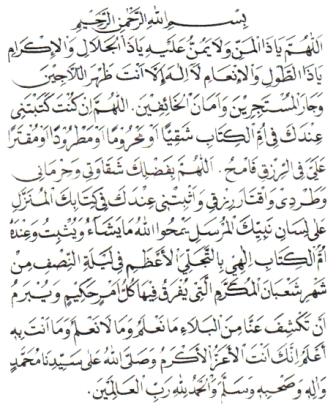 بِسْمِ اللهِ الرَّحْمٰنِ الرَّحِيْمِ
اَللّٰهُمَّ يَاذَا الْمَنِّ وَلَا يُمَنُّ عَلَيْهِ يَاذَا الْجَلَالِ وَالْاِكْرَامِ
يَاذَا الطَّوْلِ وَالْاِنْعَامِ لَآ اِلٰهَ اِلَّا اَنْتَ ظَهْرَ اللَّاجِيْنَ
وَجَارَ الْمُسْتَجِيْرِيْنَ وَاَمَانَ الْخَائِفِيْنَ. اَللّٰهُمَّ اِنْ كُنْتَ كَتَبْتَنِيْ
عِنْدَكَ فِيْ اُمِّ الْكِتَابِ شَقِيًّا اَوْ مَحْرُوْمًا وَمَطْرُوْدًا اَوْ مُقْتَرًّا
عَلَيَّ فِى الرِّزْقِ فَامْحُ. اَللّٰهُمَّ بِفَضْلِكَ شَقَاوَتِيْ وَحِرْمَانِيْ
وَطَرْدِيْ وَاِقْتَارَ رِزْقِيْ وَاَثْبِتْنِيْ عِنْدَكَ فِيْ كِتَابِكَ الْمُنَزَّلِ
عَلَى لِسَانِ نَبِيِّكَ الْمُرْسَلِ يَمْحُوا اللهُ مَا يَشَآءُ وَيُثْبِتُ وَعِنْدَهُ
اُمُّ الْكِتَابِ اِلٰهِيْ بِالتَّجَلِّى الْاَعْظَمِ فِيْ لَيْلَةِ النِّصْفِ مِنْ
شَهْرِ شَعْبَانَ الْمُكَرَّمِ الَّتِيْ يُفْرَقُ فِيْهَا كُلُّ اَمْرٍ حَكِيْمٍ وَيُبْرَمُ
اَنْ تَكْشِفَ عَنَّا مِنَ الْبَلَاءِ مَا نَعْلَمُ وَمَا لَا نَعْلَمُ وَمَا اَنْتَ بِهِ
اَعْلَمُ اِنَّكَ اَنْتَ الْاَعَزُّ الْاَكْرَمُ وَصَلَّى اللهُ عَلٰى سَيِّدِنَا مُحَمَّدٍ
وَاٰلِهِ وَصَحْبِهِ وَسَلَّمَ وَالْحَمْدُ لِلّٰهِ رَبِّ الْعَالَمِيْنَ.